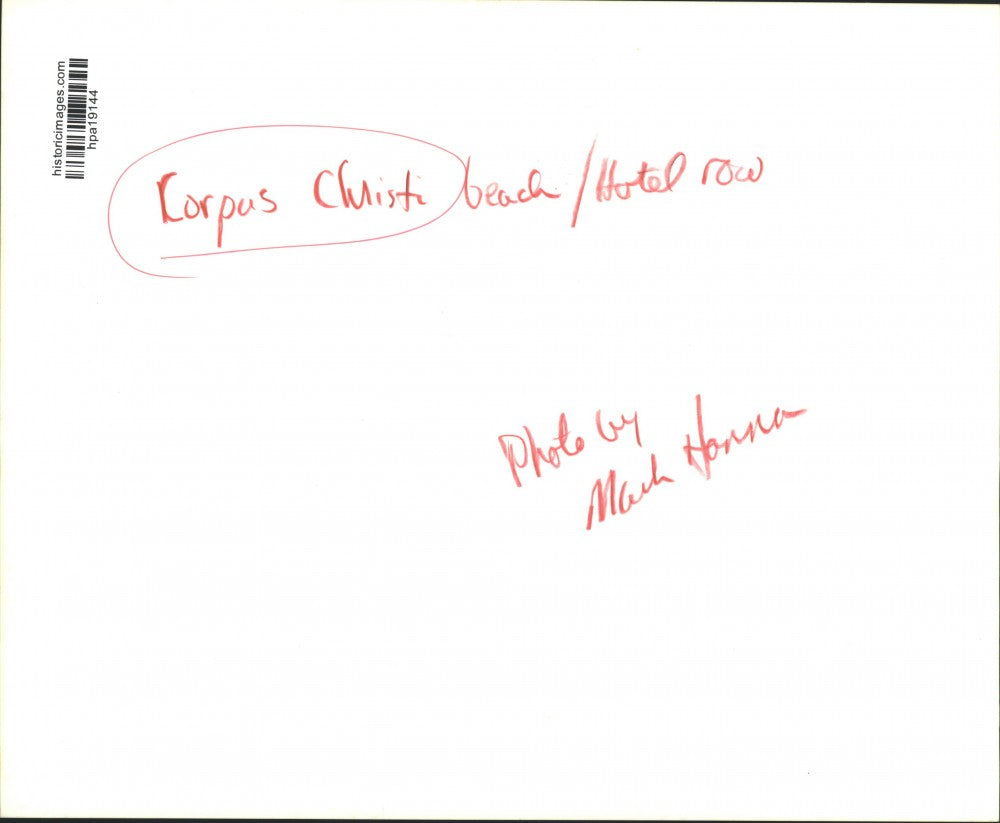 historicimages.com
hpa19144
Corpus Christi beach/Hotel row
Photo by
Mark Hanna